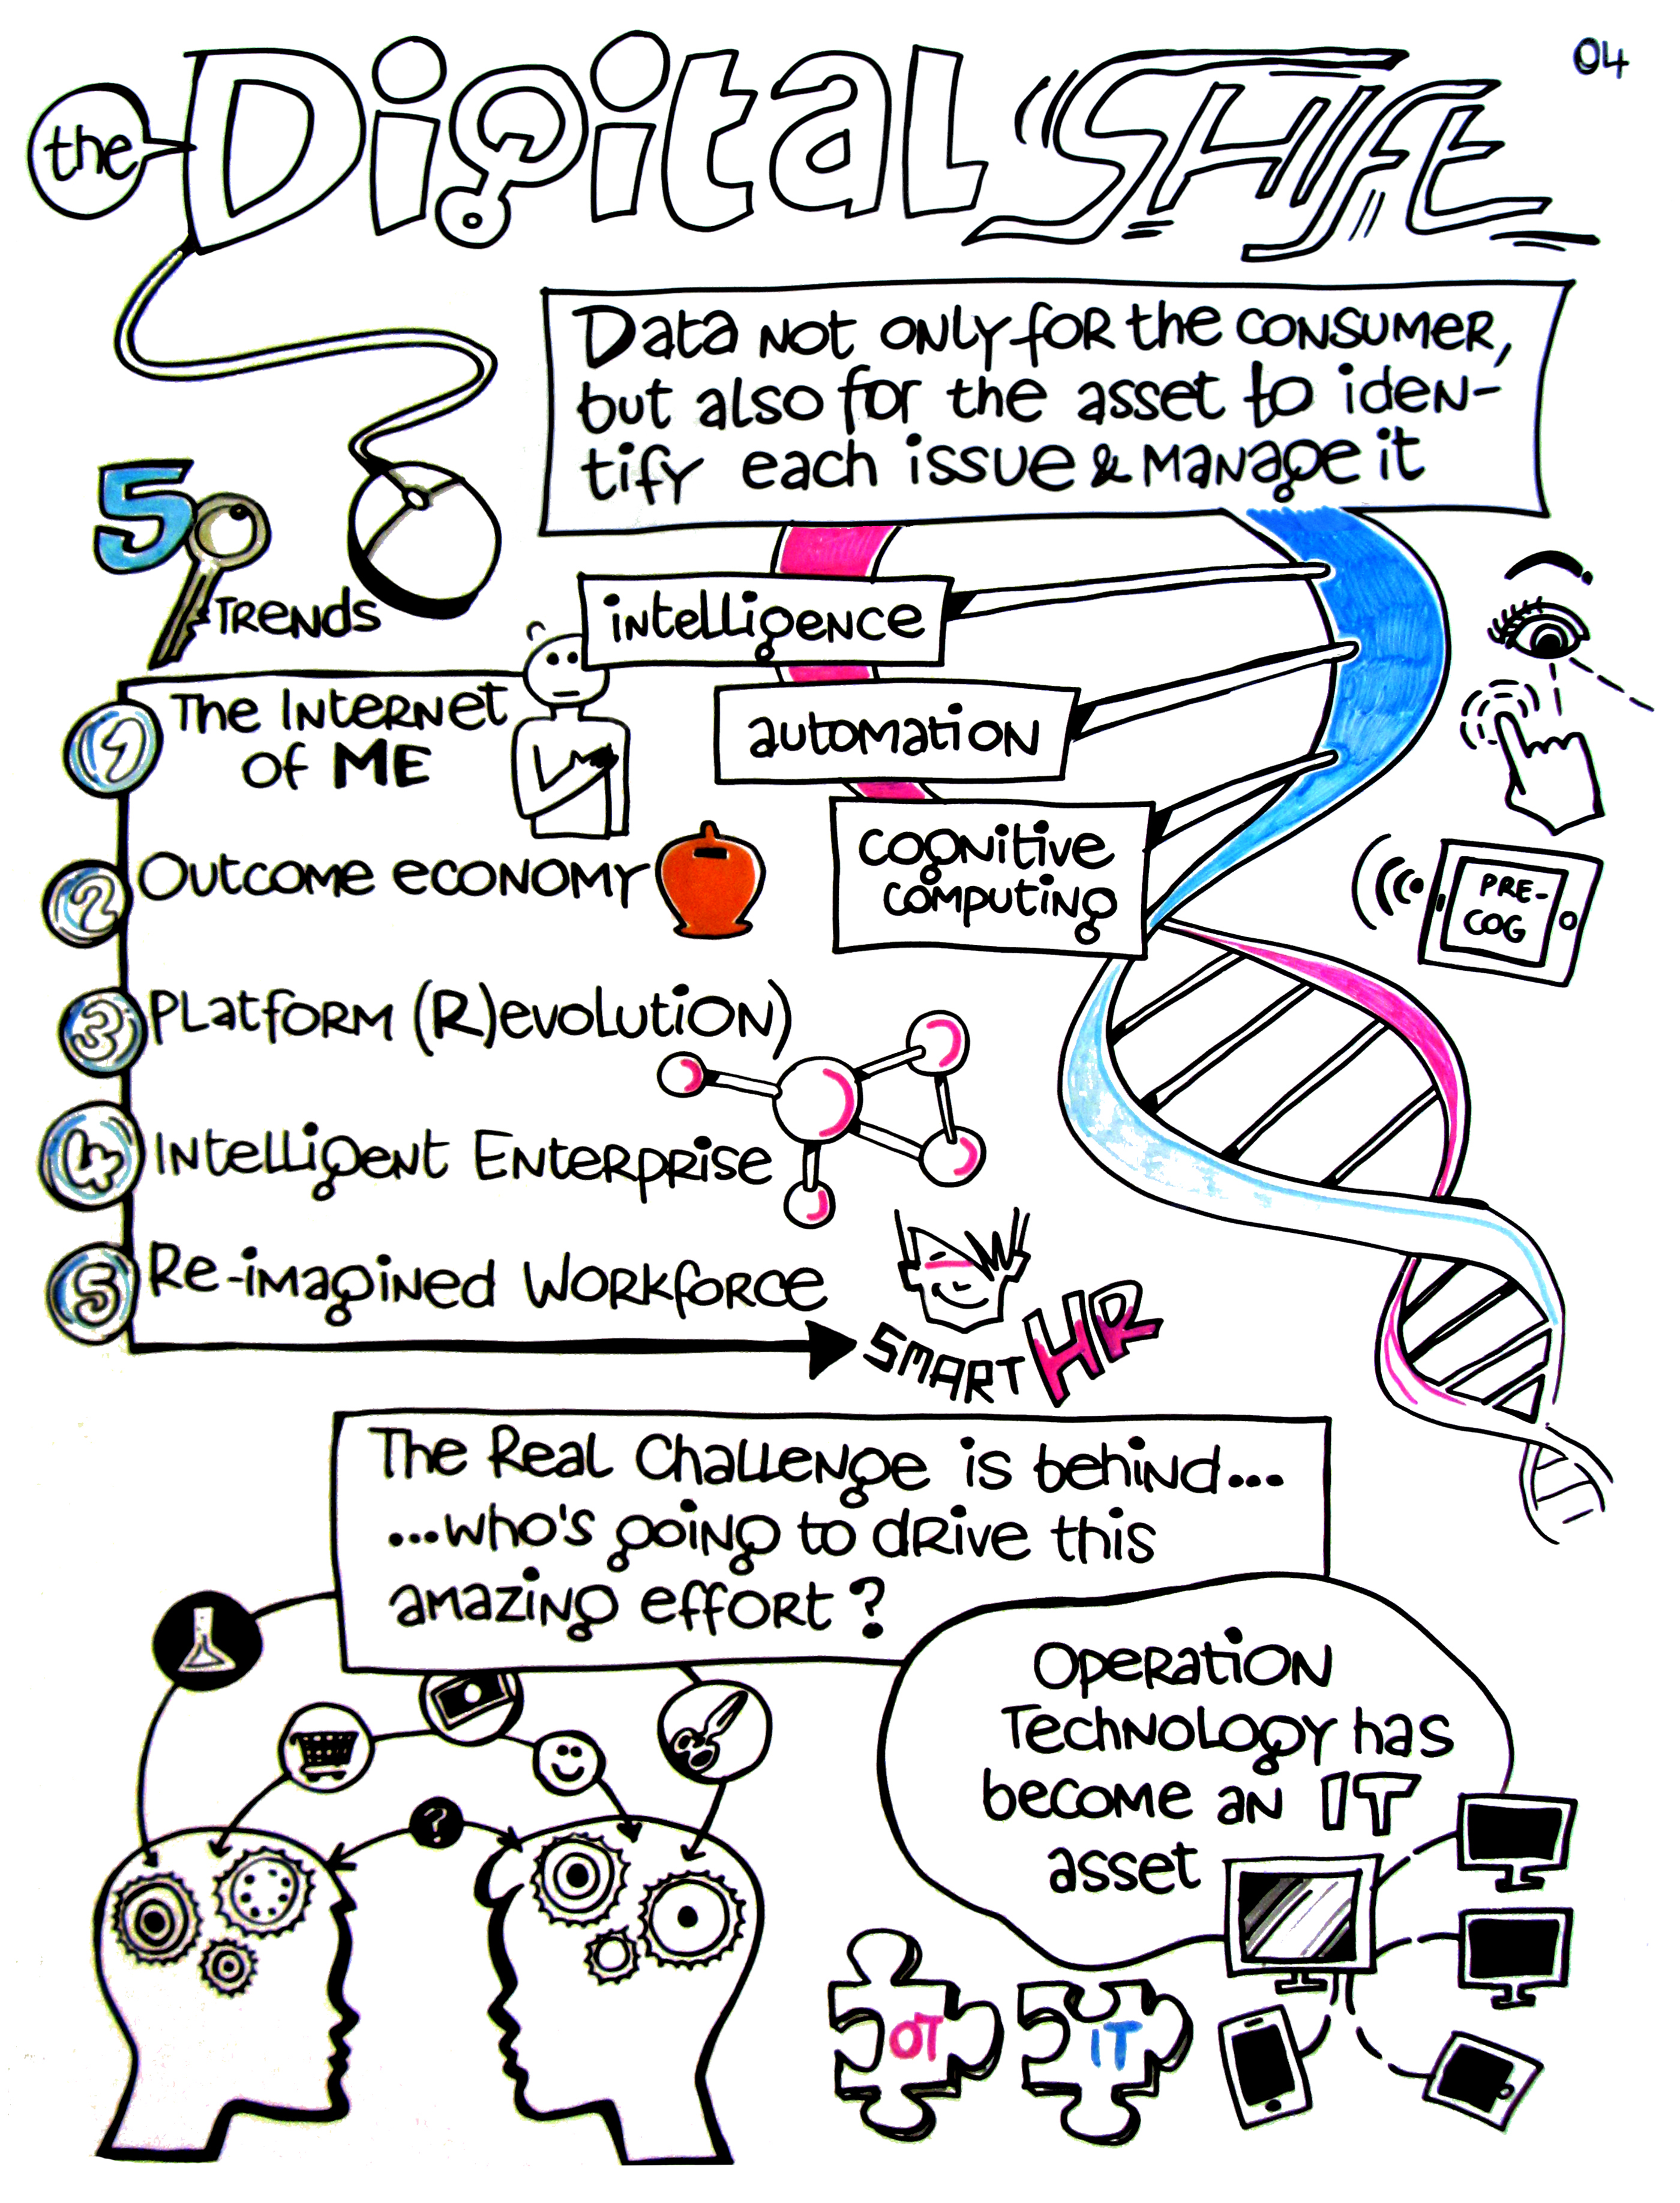 04
the Digital SHIFt
Data not only for the consumer,
but also for the asset to iden-
tify each issue & manage it
5
Trends
intelligence
automation
cognitive
computing
PRE-
COG
1
The Internet
of ME
2
Outcome economy
3
Platform (R)evolution)
4
Intelligent Enterprise
5
Re-imagined Workforce
SMART HR
The Real Challenge is behind...
...who's going to drive this
amazing effort?
?
Operation
Technology has
become an IT
asset
OT
IT